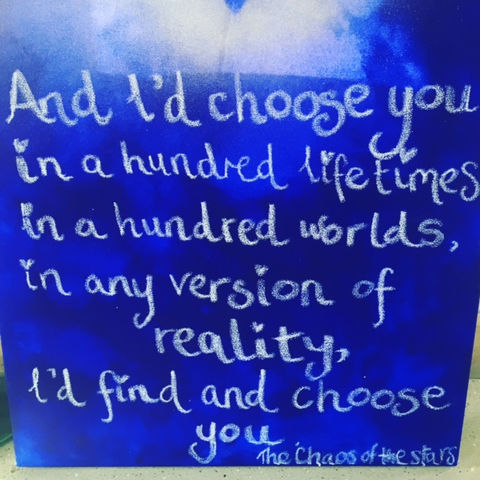 And I'd choose you
in a hundred lifetimes
in a hundred worlds,
in any version of
reality,
I'd find and choose
you
The Chaos of the stars